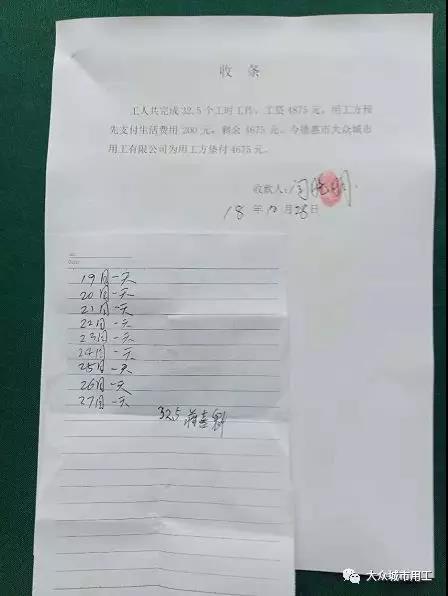 收 条
工人共完成32.5个工时工作，工资4875元，用工方预
先支付生活费用200元，剩余4675元。今德惠市大众城市
用工有限公司为用工方垫付4675元。
收款人：闫
18年10月28日
19日一天
20日一天
21日一天
22日一天
23日一天
24日一天
25日一天
26日一天
27日一天
32.5
大众城市用工